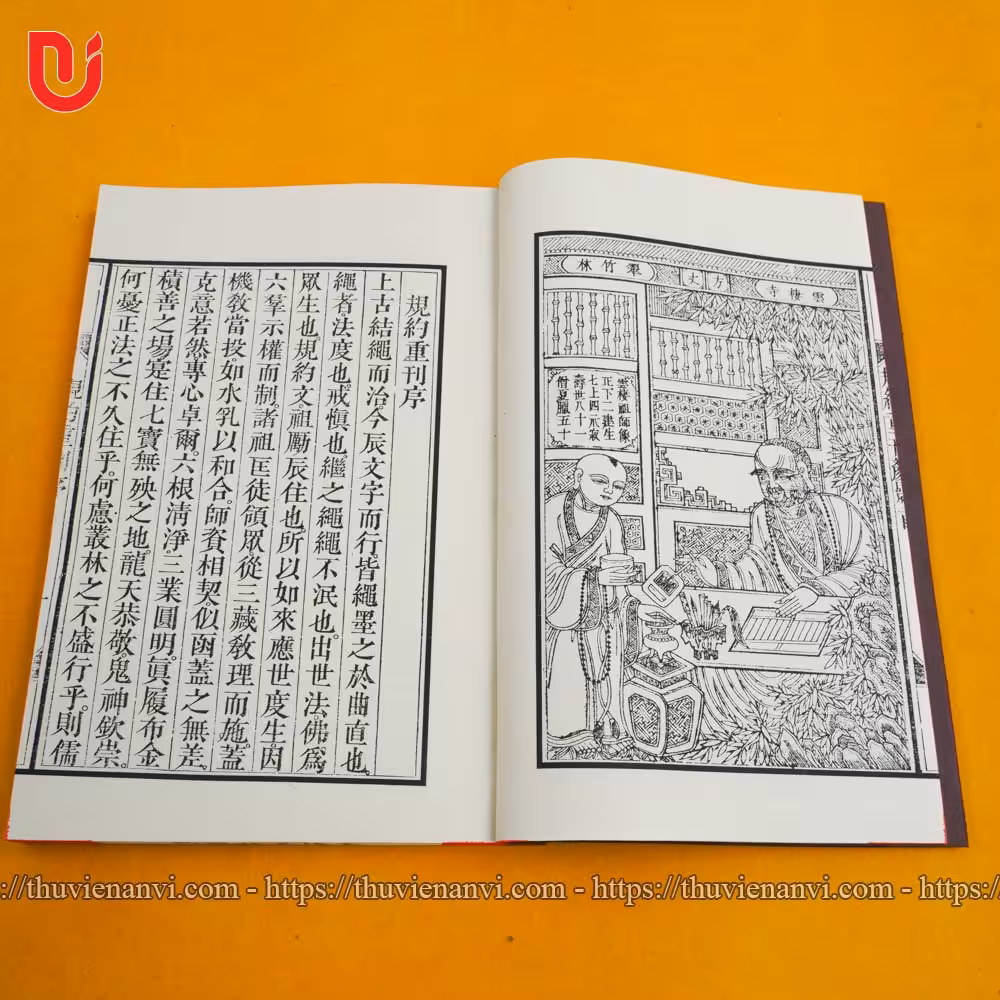 雲棲寺
方丈
翠竹林
雲棲祖師像
七上四示寂
壽世八十一
規約重刊序
上古結繩而治今辰文字而行皆繩墨之於曲直也。
繩者法度也戒慎也繼之繩繩不泯也。出世法。佛爲
眾生也規約文祖勵辰住也。所以如來應世度生。因
六羣示權而制諸祖匡徒領眾從三藏教理而施。蓋
機教當投如水乳以和合。師資相契。似函蓋之無差。
克意若然專心卓爾。六根清淨。三業圓明。眞履布金
積善之場寔住七寶無殃之地。龍天恭敬鬼神欽崇。
何憂正法之不久住乎。何慮叢林之不盛行乎。則儒
://thuvienanvi.com - https://thuvienanvi.com - https://thuvienanvi.com - https:/